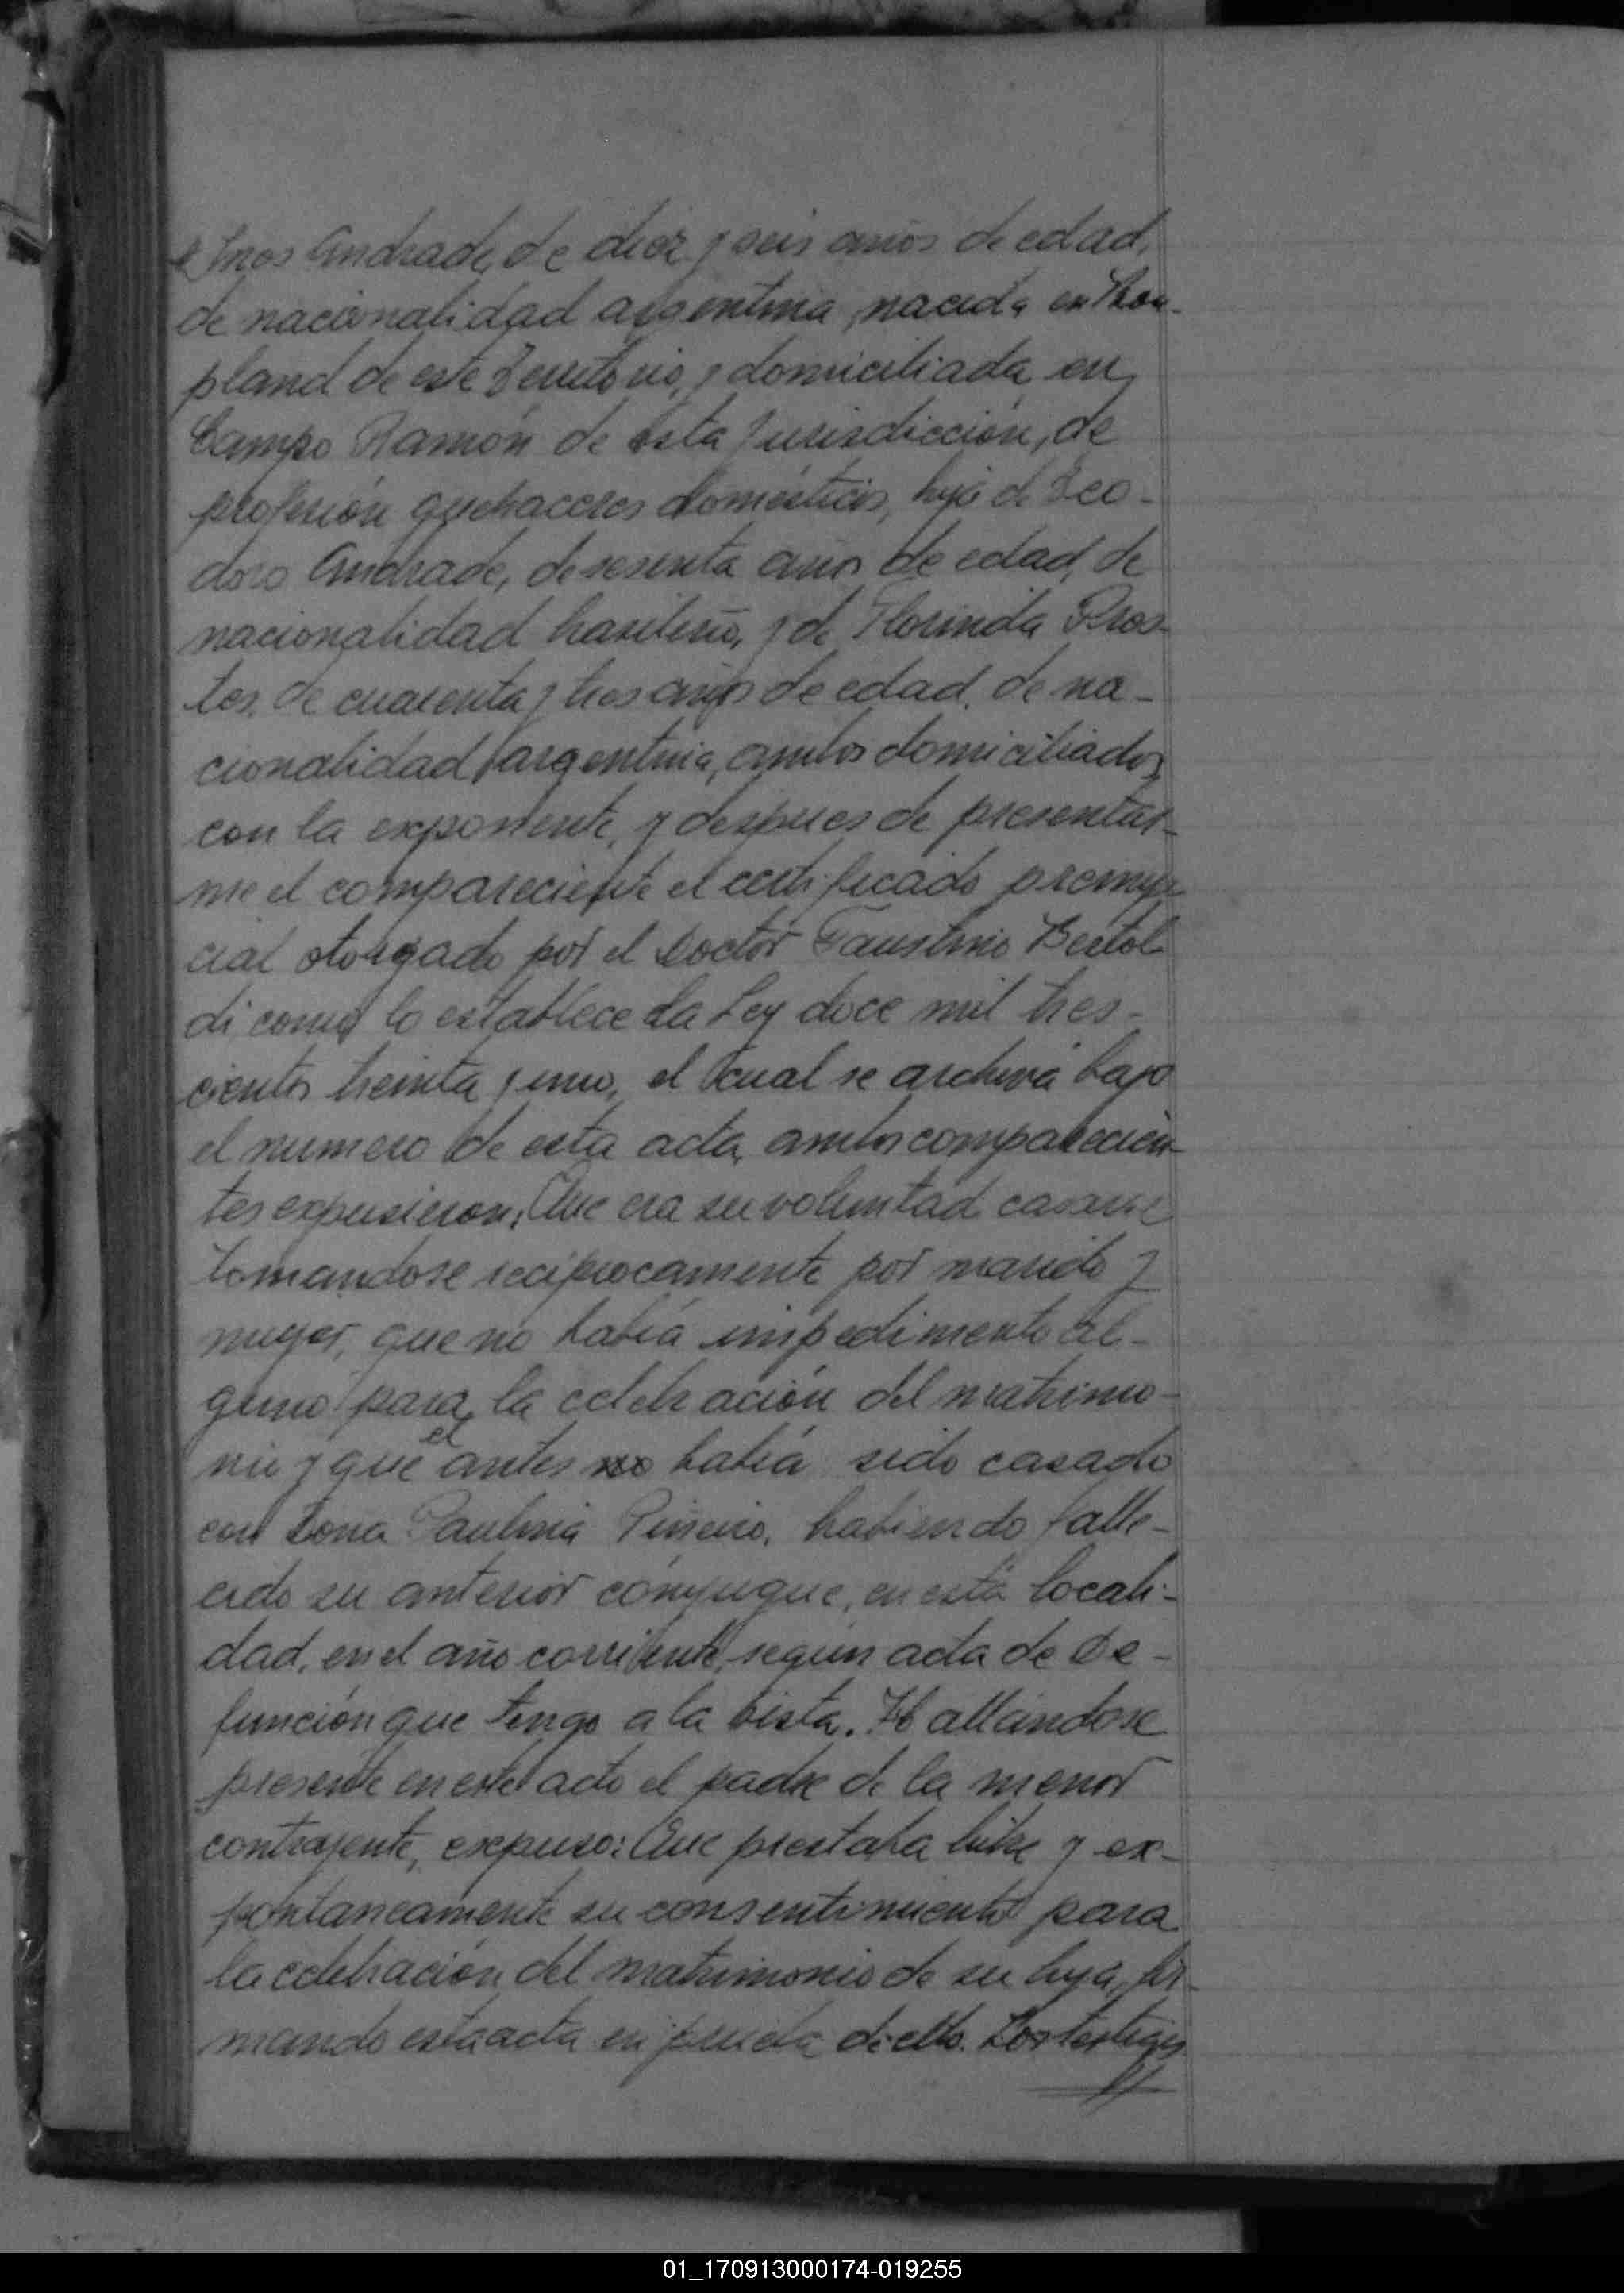 e Ines Andrade, de diez y seis años de edad,
de nacionalidad argentina, nacida en Bon-
pland de este Territorio, y domiciliada en
Campo Ramón de esta Jurisdicción, de
profesión quehaceres domésticos, hija de Teo-
doro Andrade, de sesenta años de edad, de
nacionalidad brasilero, y de Florinda Pros-
tes, de cuarenta y tres años de edad, de na-
cionalidad argentina, ambos domiciliados
con la exponente, y despues de presentar-
me el compareciente el certificado prenup-
cial otorgado por el Doctor Faustino Bertol-
di como lo establece la Ley doce mil tres-
cientos treinta y uno, el cual se archiva bajo
el numero de esta acta, ambos comparecien-
tes expusieron: Que era su voluntad casarse
tomandose reciprocamente por marido y
muger, que no había impedimento al-
guno para la celebración del matrimo-
nio y que el antes había sido casado
con Dona Paulina Piñeiro, habiendo falle-
cido su anterior cónyugue, en esta locali-
dad, en el año corriente, según acta de De-
función que tengo a la vista. Hallándose
presente en este acto el padre de la menor
contrayente, expuso: Que prestaba libre y ex-
pontaneamente su consentimiento para
la celebración del matrimonio de su hija, fir-
mando esta acta en prueba de ello. Los testigos